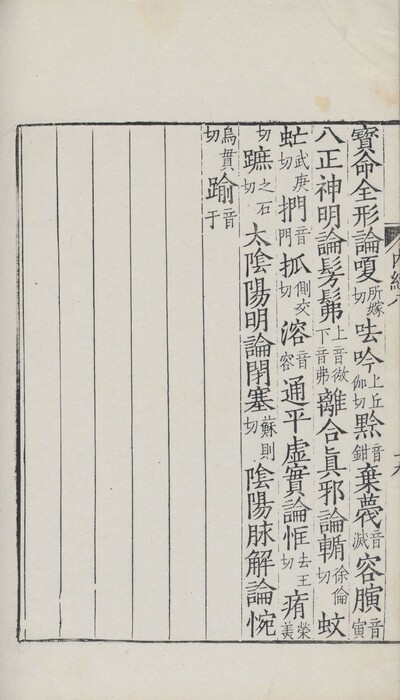 寳命全形論嗄所嫁切呿吟上丘伽切黔音鉗棄蔑音滅容瞚音寅
八正神明論髣髴上音倣下音弗離合眞邪論輴徐倫切蚊
虻武庚切捫音門抓側交切溶音容通平虛實論恇去王切痏榮美
切蹠之石切太陰陽明論閉塞蘇則切陰陽脉解論惋
烏貫切踰音于